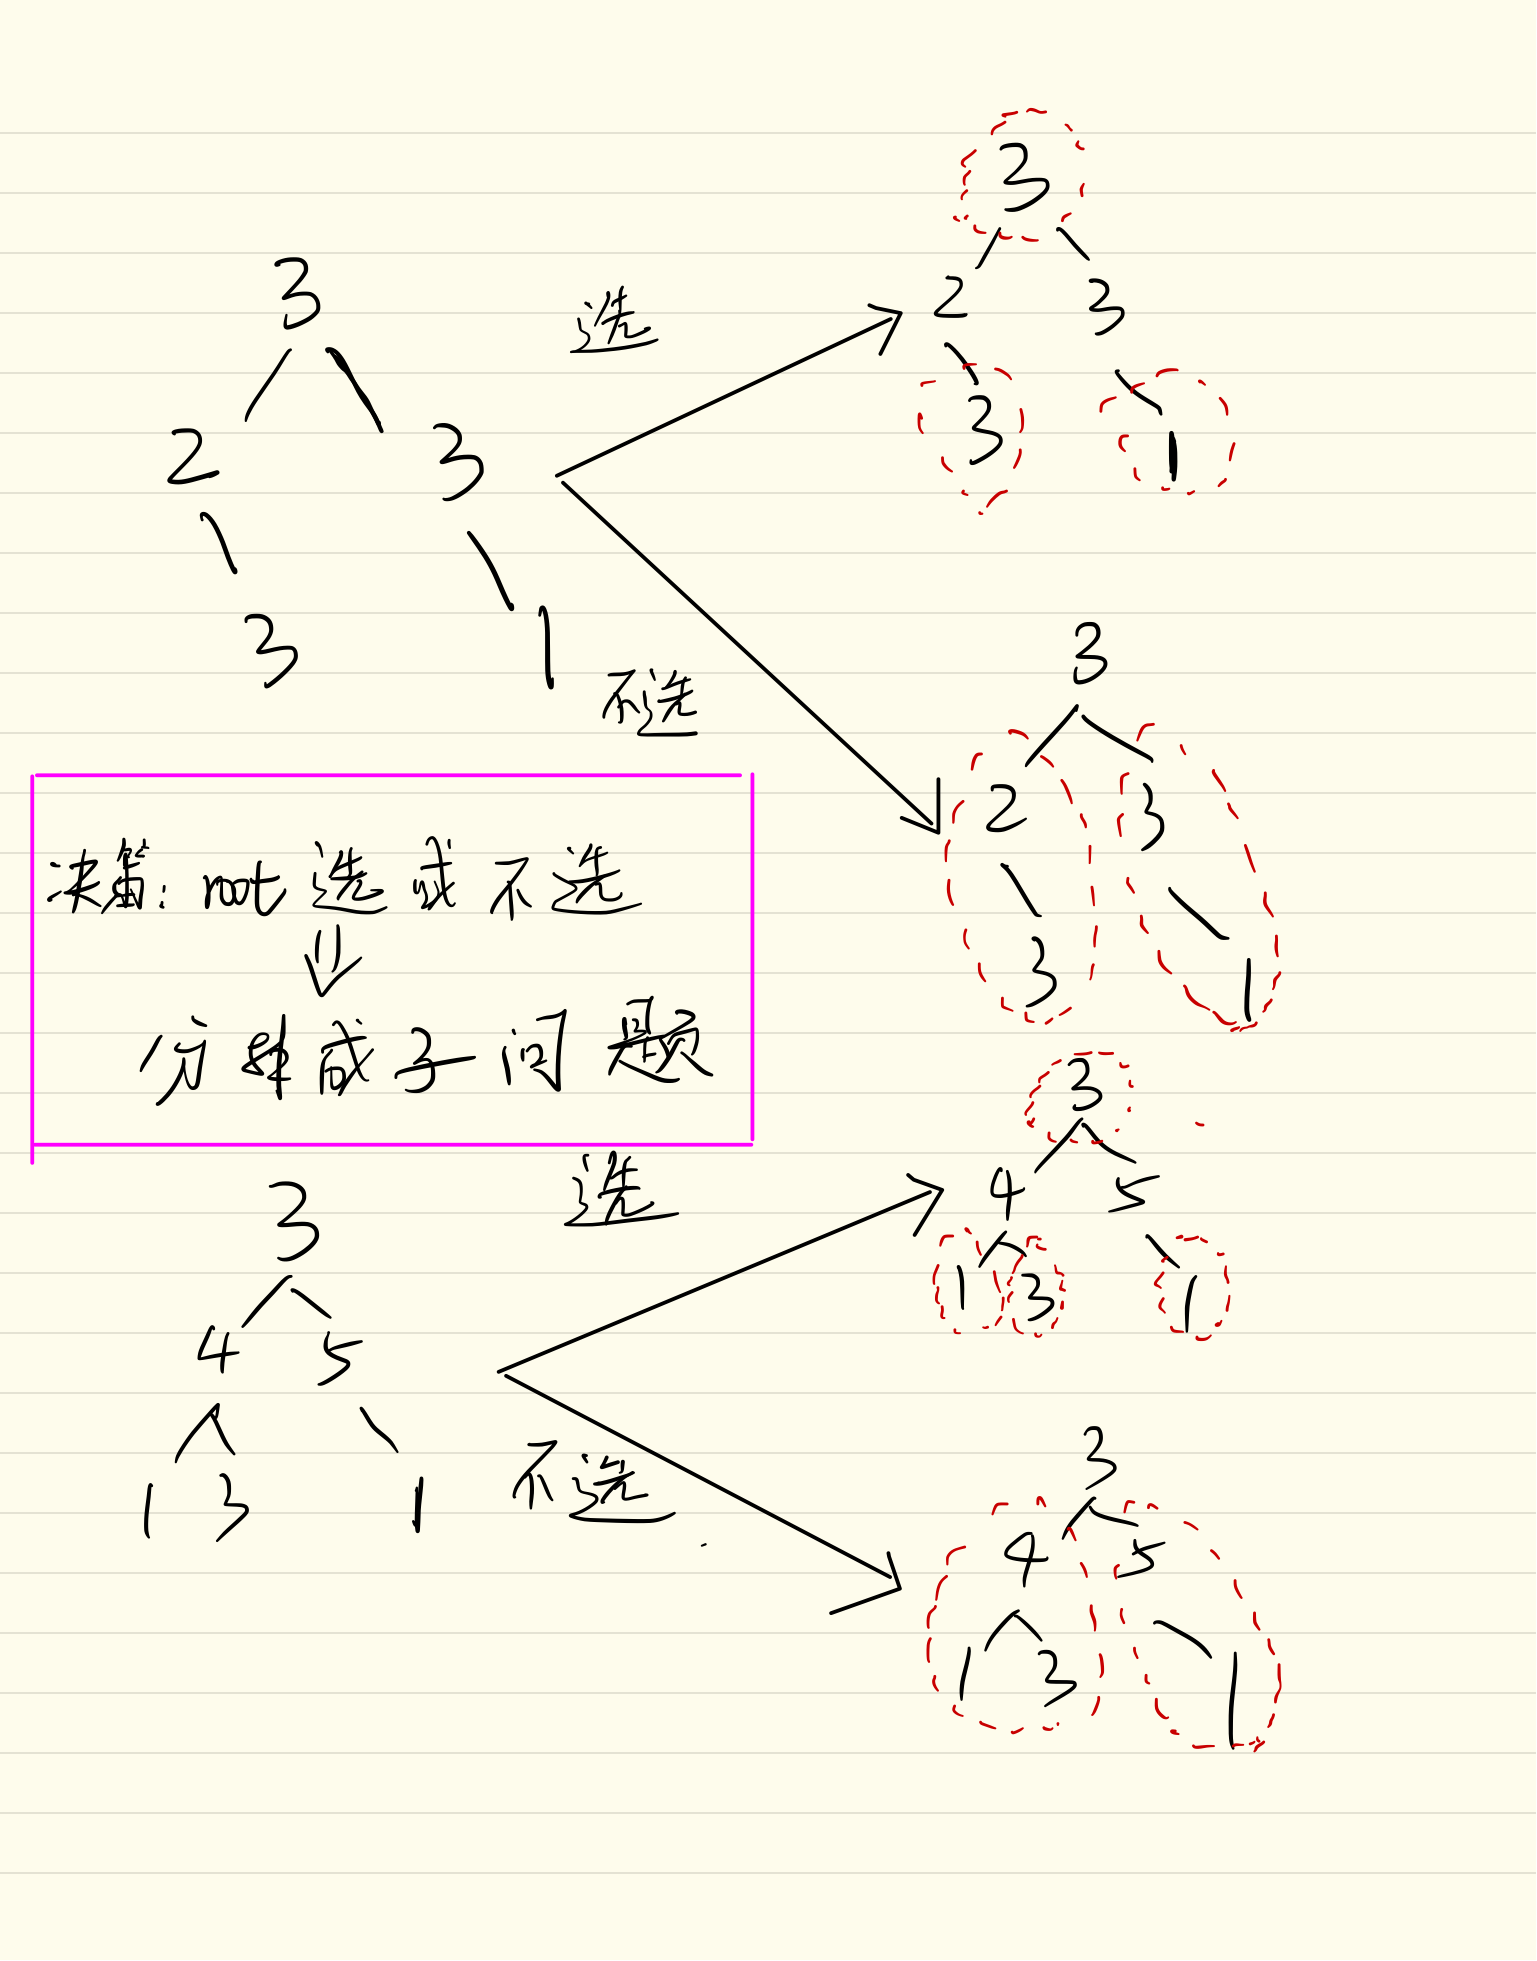 3
2 3
3 1
选
3
2 3
3 1
不选
3
2 3
3 1
决策: root 选或不选
分解成子问题
3
4 5
1 3 1
选
3
4 5
1 3 1
不选
3
4 5
1 3 1